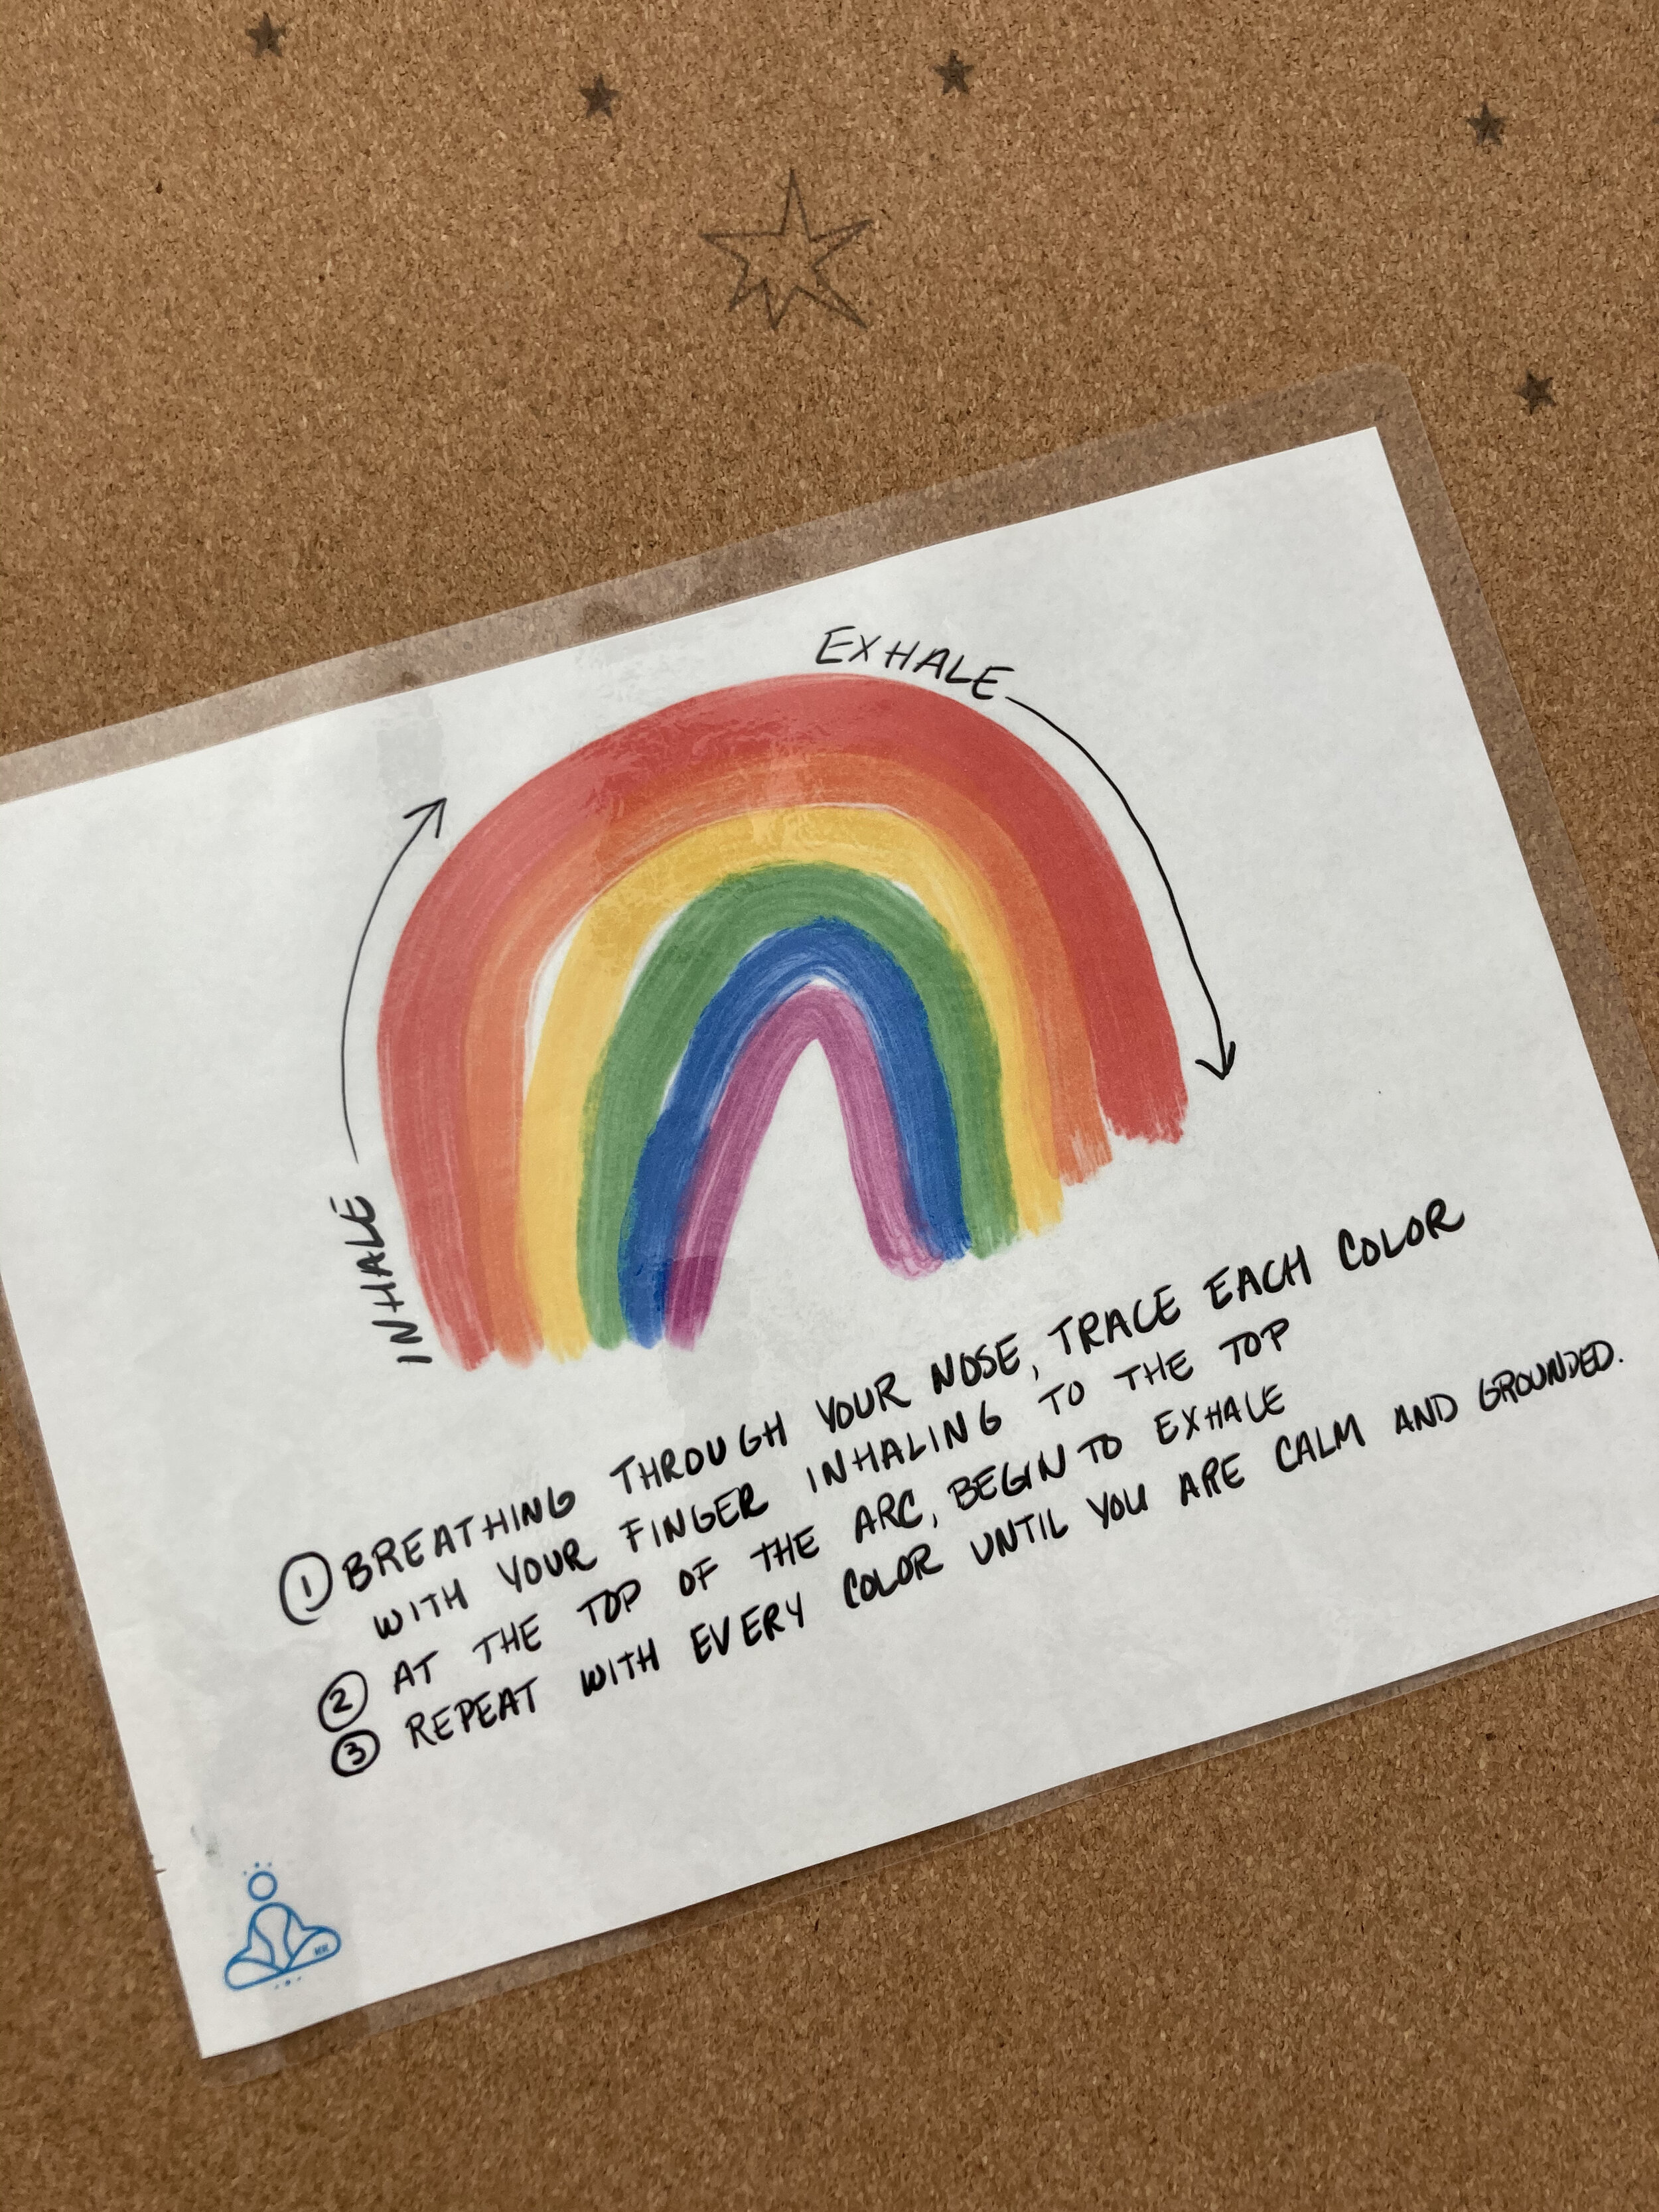 EXHALE
INHALE
① BREATHING THROUGH YOUR NOSE, TRACE EACH COLOR
WITH YOUR FINGER INHALING TO THE TOP
② AT THE TOP OF THE ARC, BEGIN TO EXHALE
③ REPEAT WITH EVERY COLOR UNTIL YOU ARE CALM AND GROUNDED.